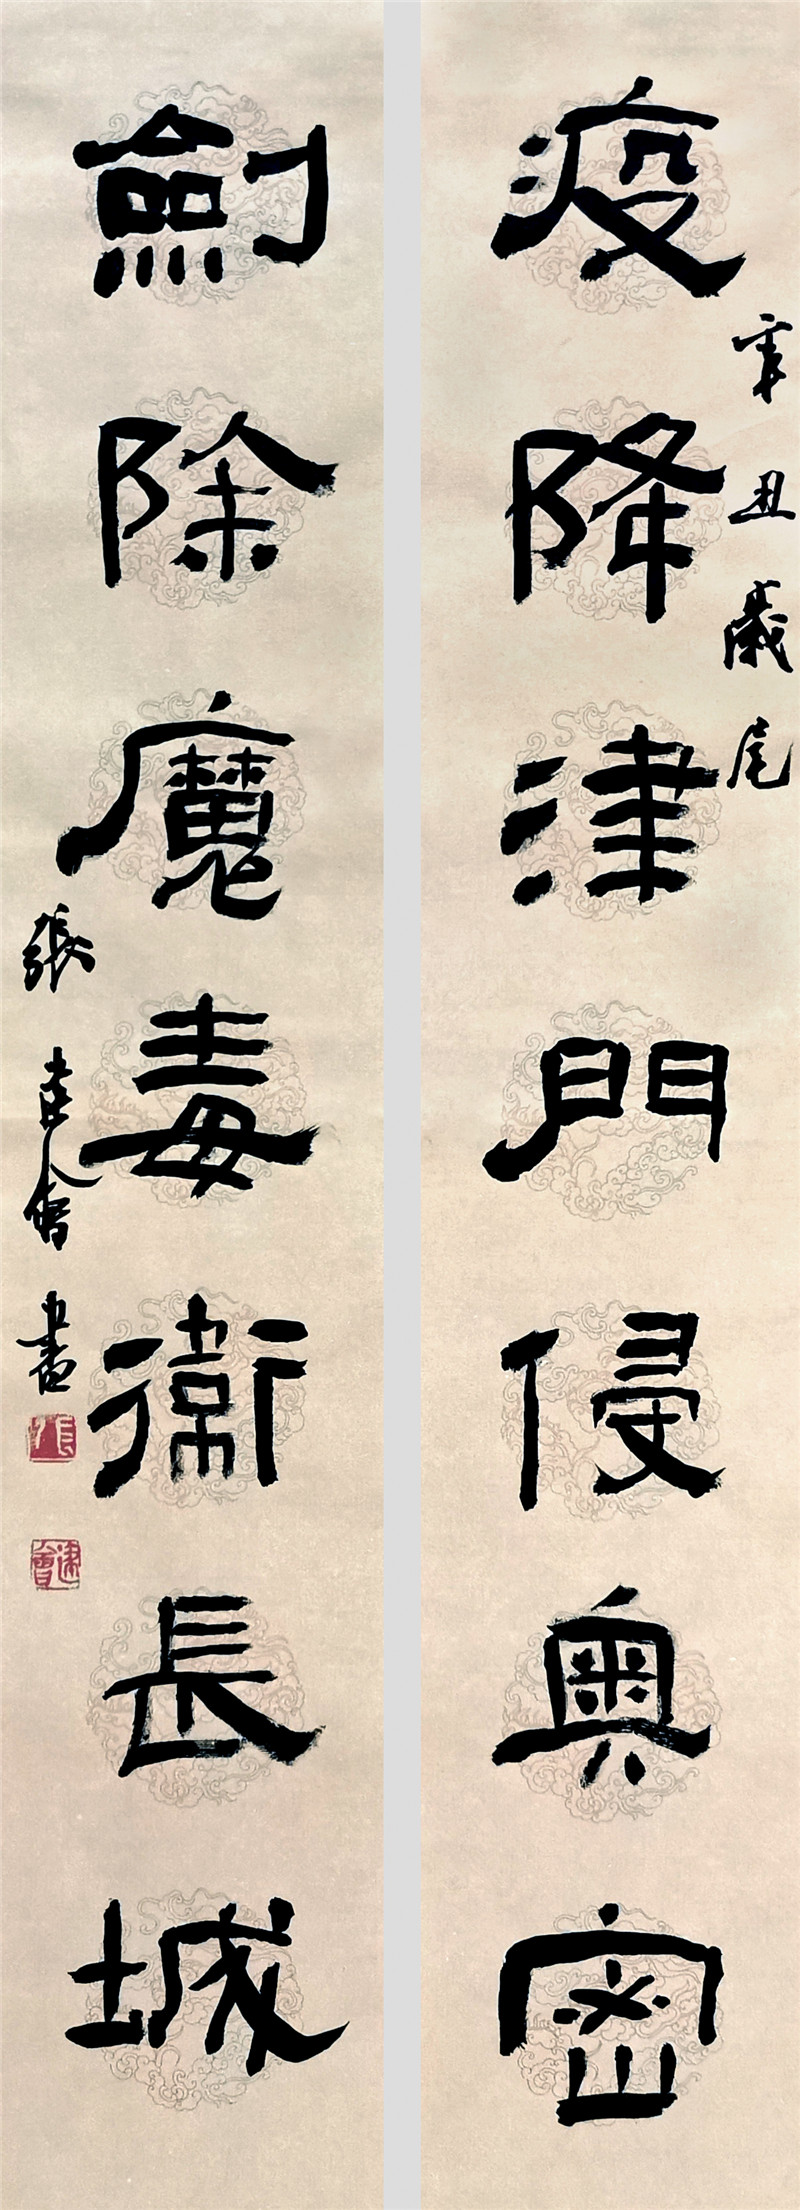 疫降津門侵奧密
辛丑歲尾
劍除魔毒衛長城
張建會書
建會